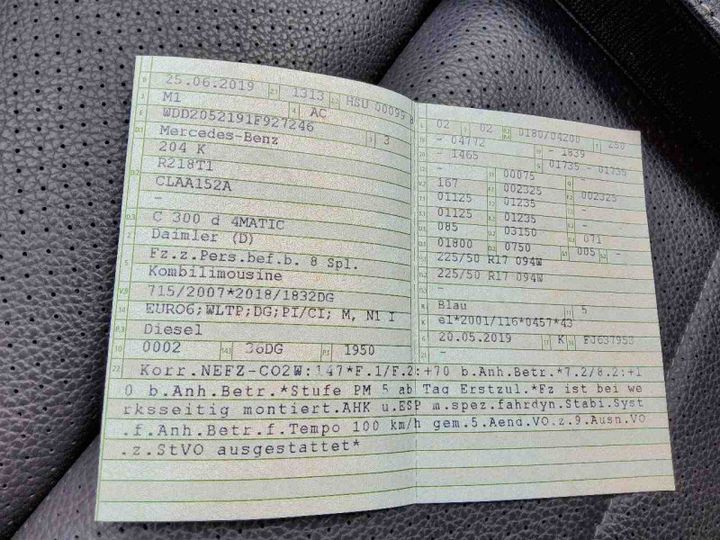 25.06.2019 1313 HSU 00099 8
M1 AC
WDD2052191F927246 3
Mercedes-Benz
204 K
R218T1
CLAA152A
-
C 300 d 4MATIC
Daimler (D)
Fz.z.Pers.bef.b. 8 Spl.
Kombilimousine
715/2007*2018/1832DG
EURO6;WLTP;DG;PI/CI; M, N1 I
Diesel
0002 36DG 1950
02 02 0180/04200 250
- 04772 - 1839
- 1465 01735 - 01735
- 00075 -
167 002325 002325
01125 01235 -
01125 01235 -
085 03150 071
01800 0750 005 -
225/50 R17 094W
225/50 R17 094W
-
Blau 5
e1*2001/116*0457*43
20.05.2019 K FJ637953
-
Korr.NEFZ-CO2W:147*F.1/F.2:+70 b.Anh.Betr.*7.2/8.2:+1
0 b.Anh.Betr.*Stufe PM 5 ab Tag Erstzul.*Fz ist bei we
rksseitig montiert.AHK u.ESP m.spez.fahrdyn.Stabi.Syst
.f.Anh.Betr.f.Tempo 100 km/h gem.5.Aend.VO.z.9.Ausn.VO
.z.StVO ausgestattet*